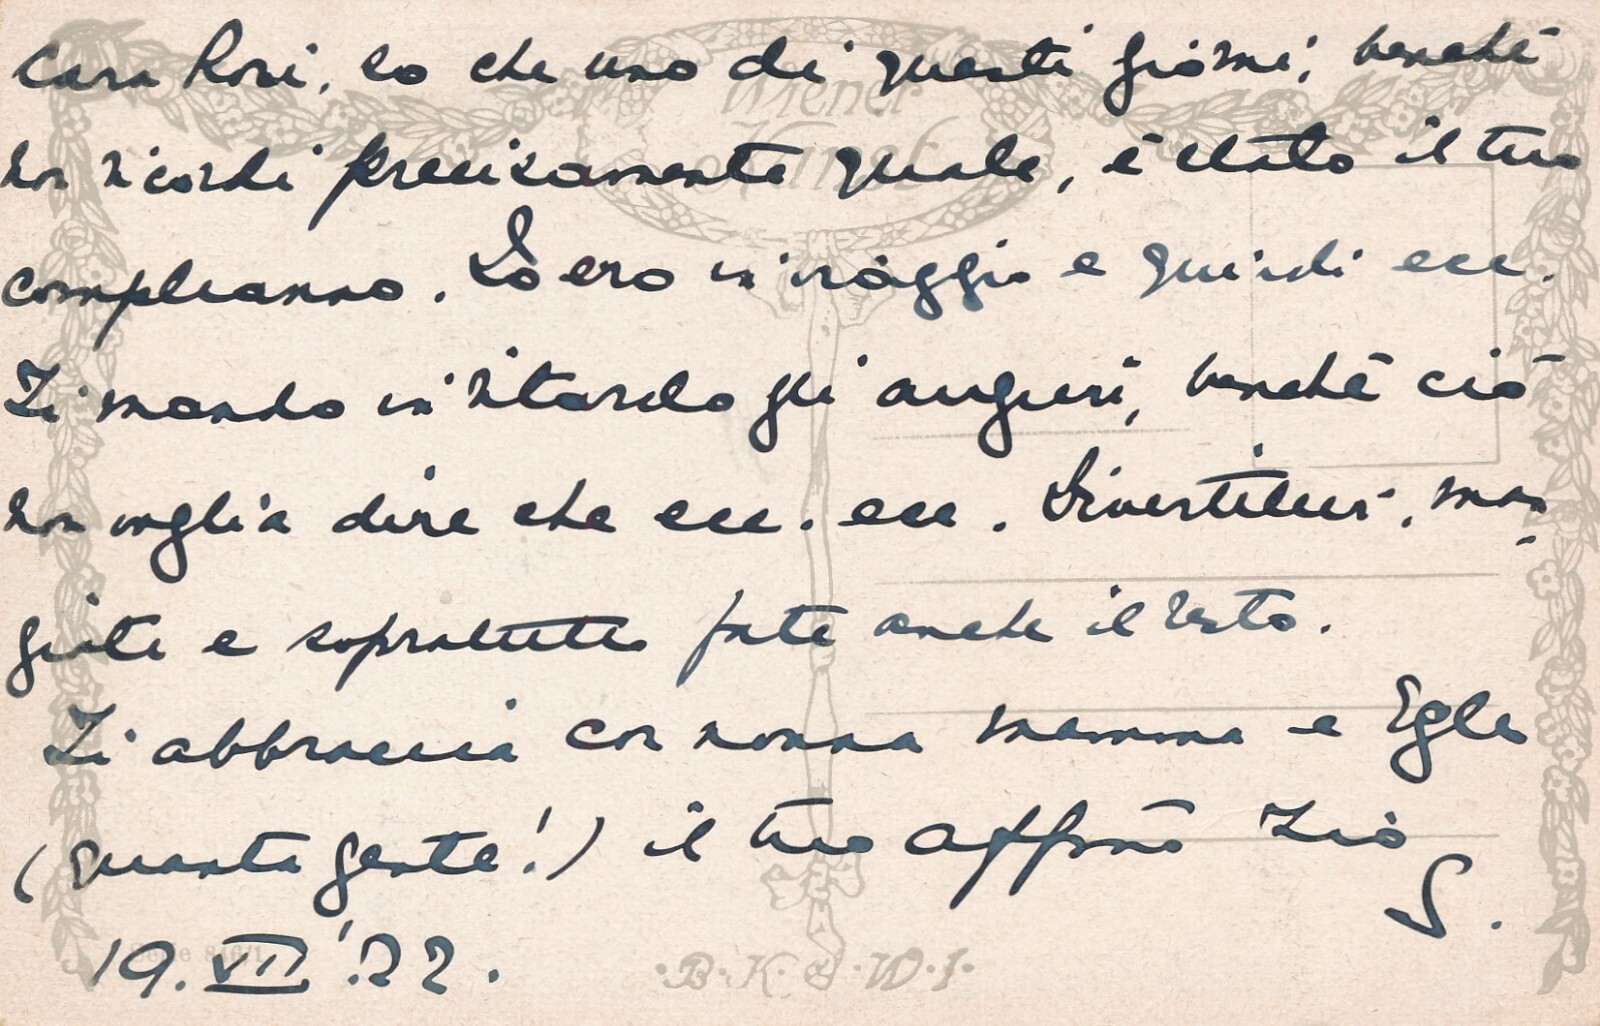 Cara Rosi, so che uno di questi giorni, benchè
non ricordi precisamente quale, è stato il tuo
compleanno. Io ero in viaggio e quindi ecc.
Ti mando in ritardo gli auguri, benchè ciò
non voglia dire che ecc. ecc. Divertitevi, man-
giate e sopratutto fate anche il resto.
Ti abbraccia con nonna mamma e Egle
(quanta gente!) il tuo affmo Zio
S.
19. VII '22.
Wiener
Kunst
Serie
·B·K·&·W·I·